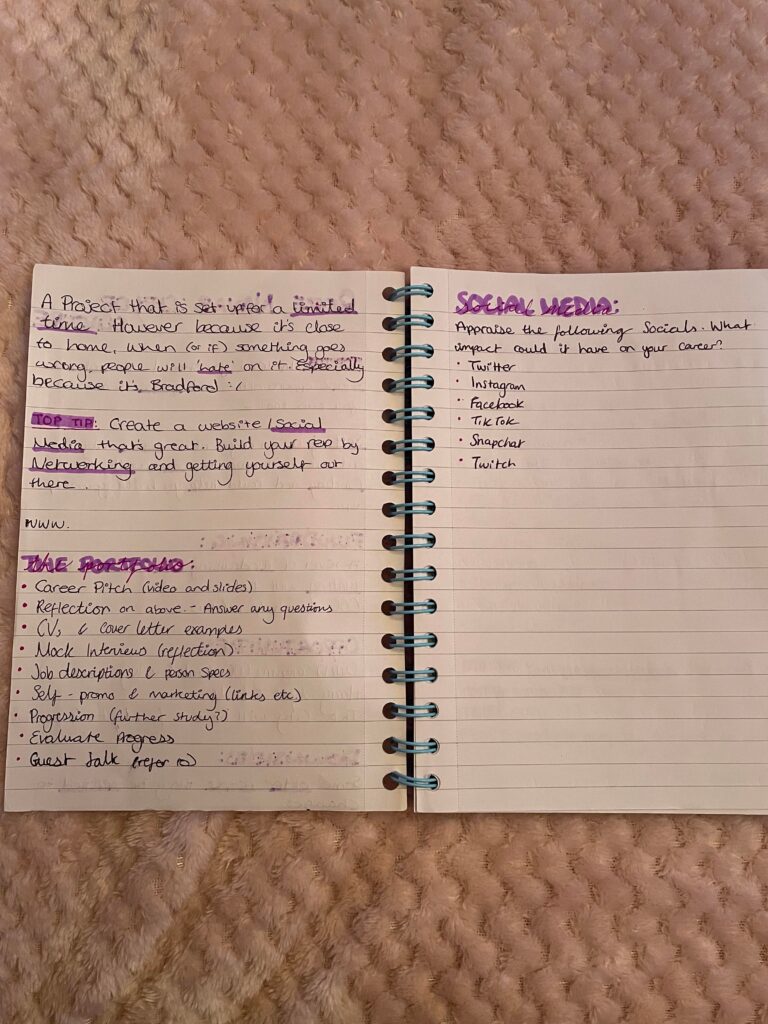 A Project that is set up for a limited
time. However because it's close
to home, when (or if) something goes
wrong, people will 'hate' on it. Especially
because it's Bradford :/
TOP TIP: Create a website / Social
Media that's great. Build your rep by
Networking and getting yourself out
there.
WWW.
THE PORTFOLIO:
• Career Pitch (video and slides)
• Reflection on above. - Answer any questions
• CVs & cover letter examples
• Mock Interviews (reflection)
• Job descriptions & person specs
• Self-promo & marketing (links etc)
• Progression (further study?)
• Evaluate Progress
• Guest talk (refer to)
SOCIAL MEDIA:
Appraise the following Socials. What
impact could it have on your career?
• Twitter
• Instagram
• Facebook
• TikTok
• Snapchat
• Twitch